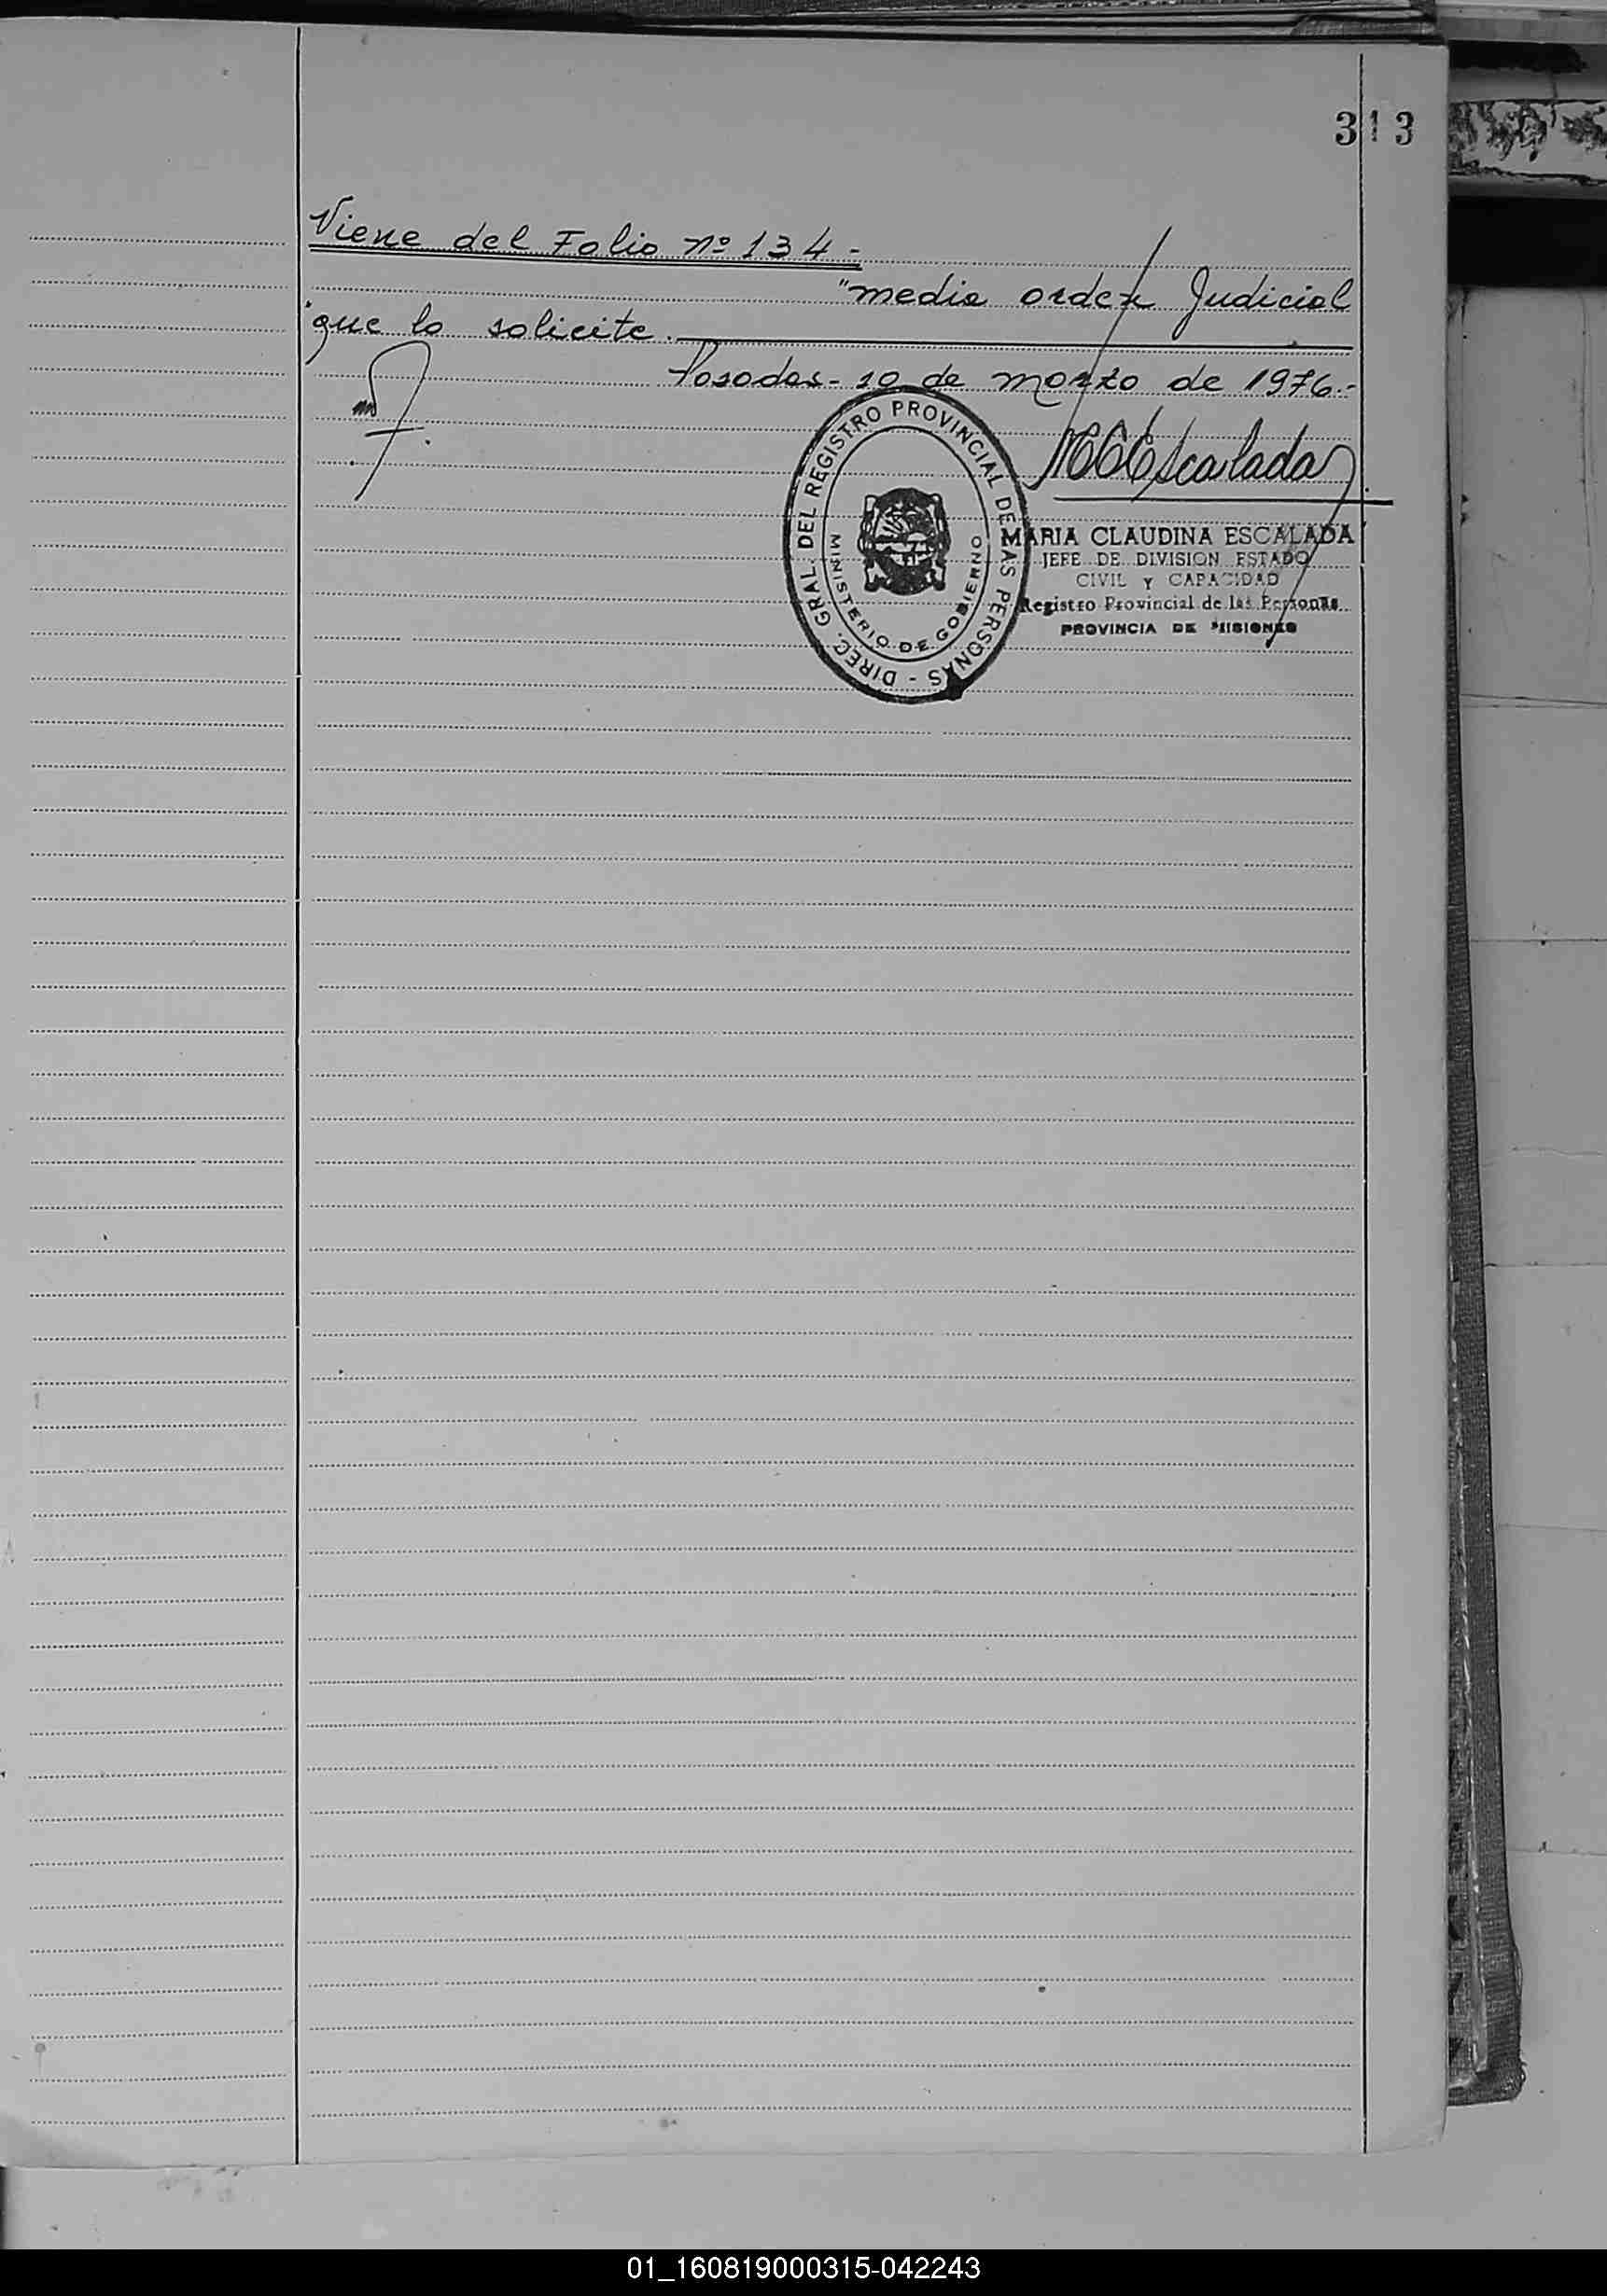 313
Viene del Folio nº 134-
"media orden Judicial
"que lo solicite.
Posadas- 10 de marzo de 1976.-
MCCEscalada
DIREC. GRAL. DEL REGISTRO PROVINCIAL DE LAS PERSONAS -
MINISTERIO DE GOBIERNO
MARIA CLAUDINA ESCALADA
JEFE DE DIVISION ESTADO
CIVIL Y CAPACIDAD
Registro Provincial de las Personas
PROVINCIA DE MISIONES
01_160819000315-042243